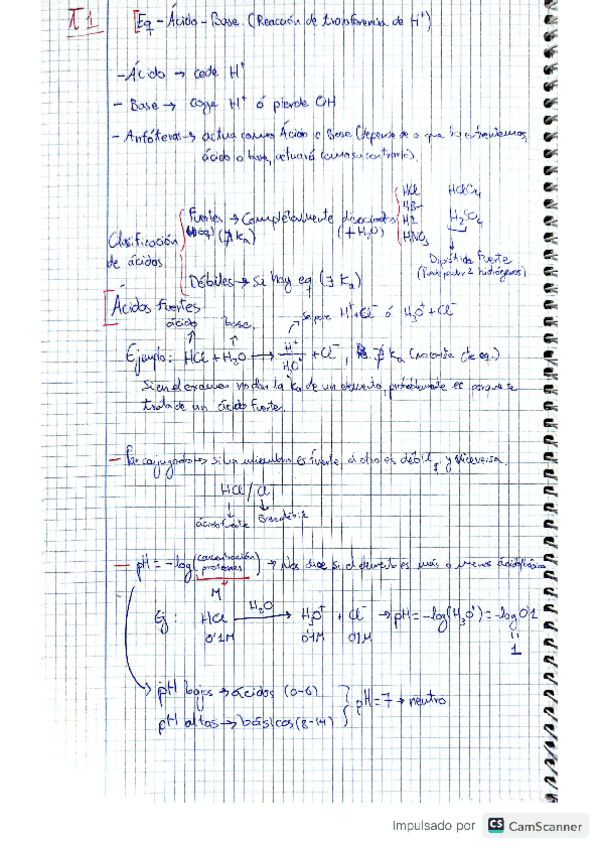 T 1
Eq - Ácido - Base. (Reacción de transferencia de H⁺)
- Ácido → cede H⁺
- Base → coge H⁺ ó pierde OH
- Anfóteras → actua como Ácido o Base (depende de o que lo
ácido o base, actuará como su contrario).
Clasificación de ácidos
Fuertes → Completamente disociados (+H₂O)
(∄ Ka)
HCl
HBr
HI
HNO₃
HClO₄
H₂SO₄
Fuerte
2 hidrógenos)
Débiles → si hay eq (∃ Ka)
Ácidos fuertes
ácido base
H⁺ + Cl⁻ ó H₃O⁺ + Cl⁻
Ejemplo: HCl + H₂O → H⁺ / H₃O⁺ + Cl⁻, ∄ Ka (no cte de eq.)
Si en el examen no dan la Ka de un elemento, probablemente es porque se
trata de un ácido fuerte.
- Par conjugado → si un es fuerte, el otro es débil, y viceversa.
HCl / Cl⁻
ácido fuerte Base débil
- pH = -log (concentración protones) → Nos dice si el elemento es más o menos
M
Ej: HCl —H₂O→ H₃O⁺ + Cl⁻ → pH = -log(H₃O⁺) = -log 0'1
0'1M 0'1M 0'1M = 1
pH bajos → ácidos (0-6)
pH altos → básicos (8-14)
pH = 7 → neutro
Impulsado por CS CamScanner